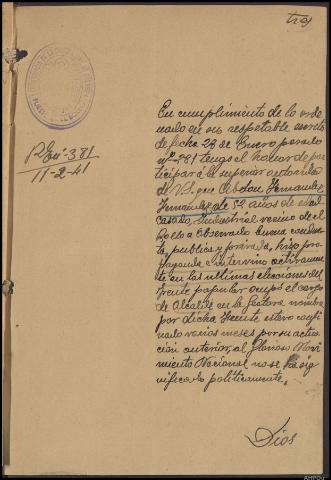 tres
En cumplimiento de lo orde
nado en su respetable escrito
de fecha 28 de Enero pasado
nº 281 tengo el honor de par
ticipar a la superior autoridad
de V.S. que Abdon Fernandez
Fernandez de 52 años de edad
casado, Industrial vecino de el
Rollo a observado buena conduc
ta publica y privada, hizo pro
paganda e intervino activamen
te en las ultimas elecciones del
frente popular ocupó el cargo
de Alcalde en la Gestora nombra
por dicho Frente estuvo confi
nado varios meses por su actua
ción anterior, al Glorioso Movi
miento Nacional no se ha sig
nificado politicamente.
11-2-41
Dios